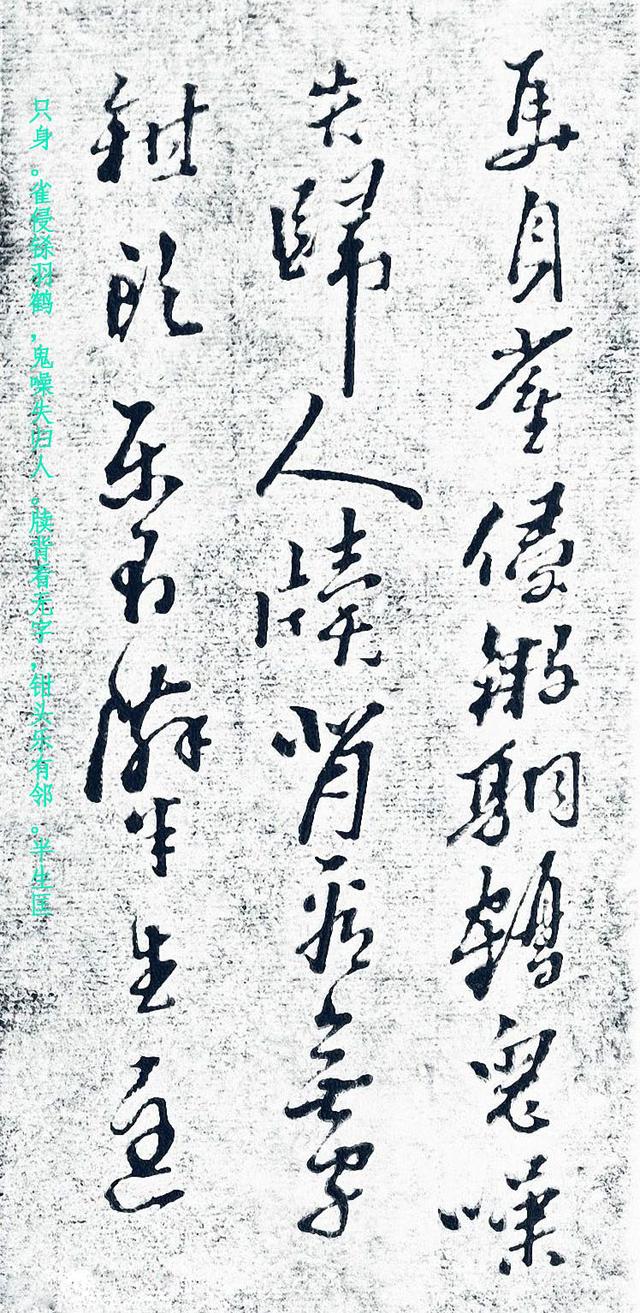 隻身雀侵羽鶴鬼噪
失歸人牘背看無字
鉗頭樂有鄰半生匡
只身。雀侵羽鹤,鬼噪失归人。牍背看无字,钳头乐有邻。半生匡